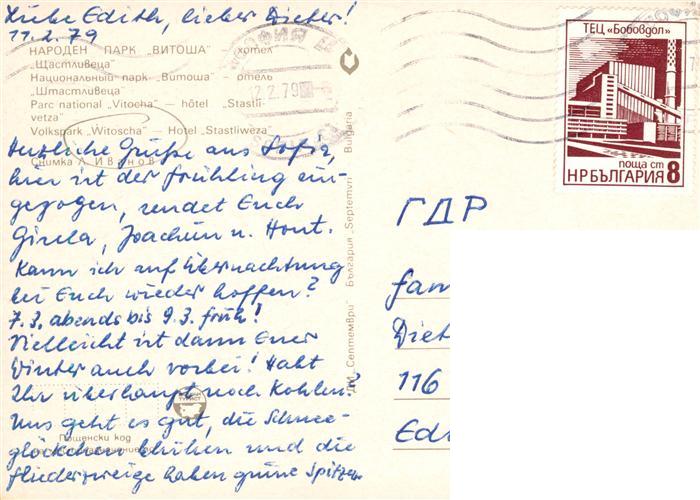 Liebe Edith, lieber Dieter!
11.2.79
НАРОДЕН ПАРК „ВИТОША" – хотел
„Щастливеца"
Национальный парк „Витоша" – отель
„Штастливеца"
Parc national „Vitocha" — hôtel „Stastli-
vetza"
Volkspark „Witoscha" — Hotel „Stastliweza"
Снимка Л. Иванов
Herzliche Grüße aus Sofia,
hier ist der Frühling ein-
gezogen, sendet Euch
Gisela, Joachim u. Horst.
Kann ich auf Übernachtung
bei Euch wieder hoffen?
7.3. abends bis 9.3. früh!
Vielleicht ist dann Euer
Winter auch vorbei! Habt
Ihr überhaupt noch Kohlen?
Uns geht es gut, die Schnee-
glöckchen blühen und die
Fliederzweige haben grüne Spitzen.
Пощенски код
ДИ „Септември" България „Septemvri" Bulgaria
СОФИЯ
12.2.79
ТЕЦ «Бобовдол»
поща ст
НРБЪЛГАРИЯ 8
ГДР
Fam
Diet
116
Ed